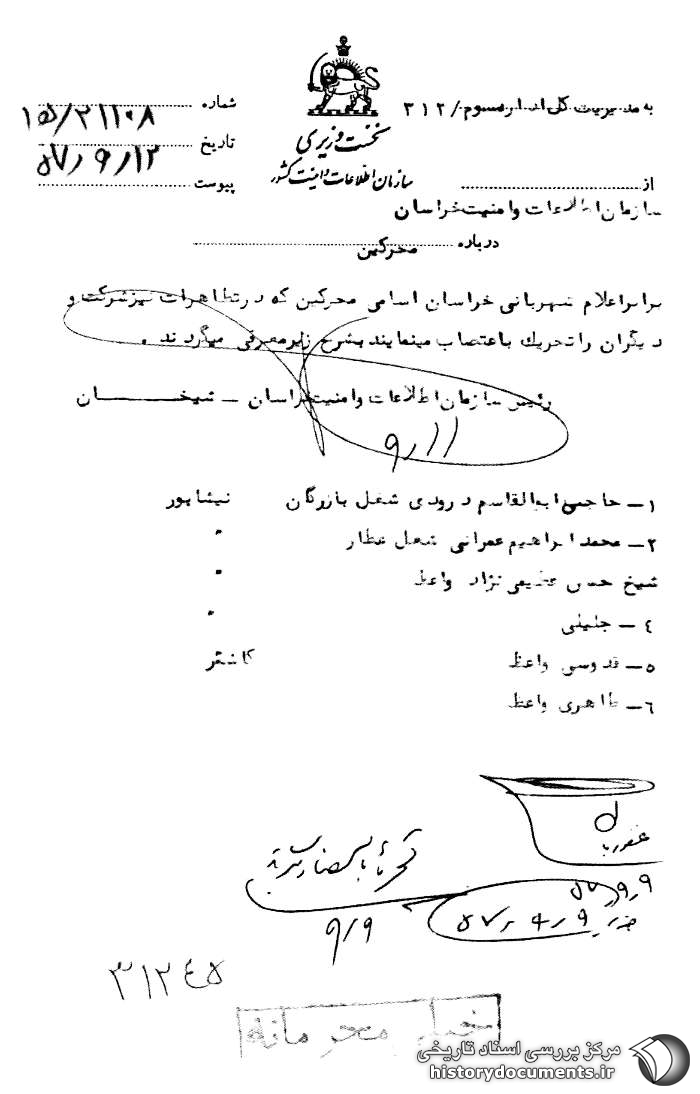 به مدیریت کل اداره سوم/ ۳۱۲
شماره ۱۵/۲۱۱۰۸
نخست وزیری
تاریخ ۵۷/۹/۱۲
سازمان اطلاعات و امنیت کشور
پیوست
از
سازمان اطلاعات وامنیت خراسان
درباره محرکین
برابر اعلام شهربانی خراسان اسامی محرکین که در تظاهرات نیز شرکت و
دیگران را تحریک باعتصاب مینمایند بشرح زیر معرفی میگردند .
رئیس سازمان اطلاعات وامنیت خراسان – شیخان
۹/۱۱
۱– حاجی ابوالقاسم درودی شغل بازرگان نیشابور
۲– محمد ابراهیم عمرانی شغل عطار "
شیخ حسن عظیمی نژاد واعظ "
٤ – جلیلی "
۵– قدوسی واعظ کاشمر
٦– طاهری واعظ
۹/۹
۳۱۲٤۵
خیلی محرمانه
مرکز بررسی اسناد تاریخی
historydocuments.ir